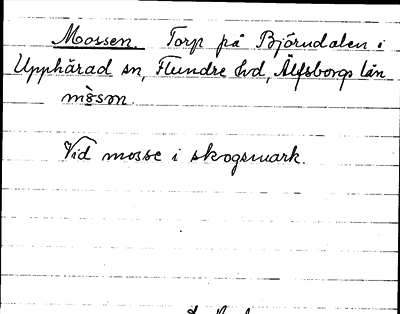 Mossen. Torp på Björndalen i
Upphärad sn, Flundre hd, Älfsborgs län
mòsən.
Vid mosse i skogsmark.